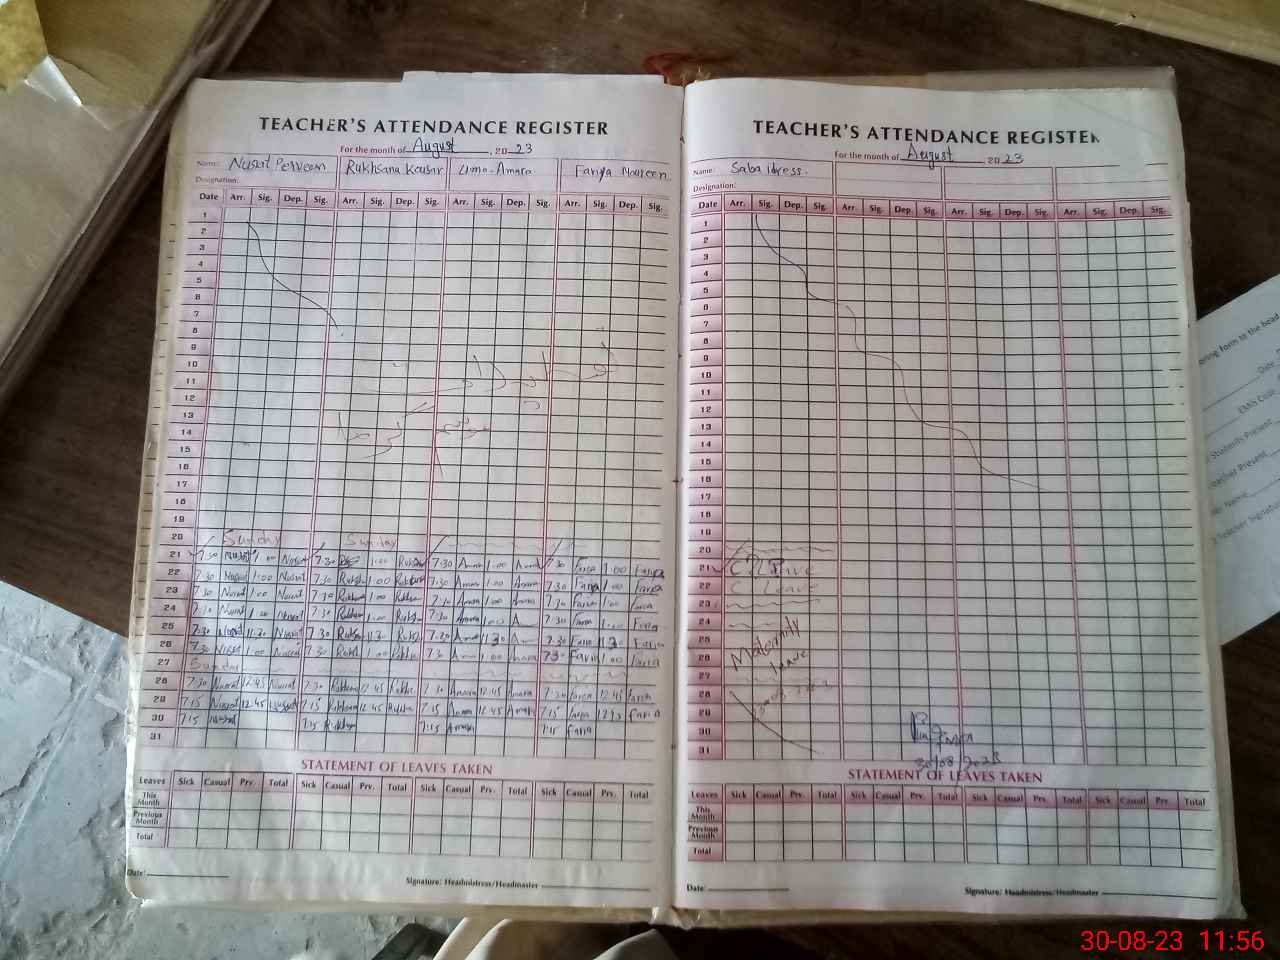 TEACHER'S ATTENDANCE REGISTER
For the month of August, 2023
Name: Nusrat Perveen Rukhsana Kausar Umm-Amara Fariya Noureen
Designation:
Date Arr. Sig. Dep. Sig. Arr. Sig. Dep. Sig. Arr. Sig. Dep. Sig. Arr. Sig. Dep. Sig.
1
2
3
4
5
6
7
8
9
10
11
12
13
14
15
16
17
18
19
20 Sunday Sunday
21 7:30 Nusrat 1:00 Nusrat 7:30 1:00 Ruksh 7:30 Amara 1:00 Amara 7:30 Farea 1:00 Faria
22 7:30 Nusrat 1:00 Nusrat 7:30 Ruksh 1:00 Rukhsa 7:30 Amara 1:00 Amara 7:30 Faria 1:00 Faria
23 7:30 Nusrat 1:00 Nusrat 7:30 1:00 7:30 Amara 1:00 Amara 7:30 Faria 1:00 Farea
24 7:30 Nusrat 1:00 Nusrat 7:30 1:00 7:30 Amara 1:00 7:30 Faria 1:00 Faria
25 7:30 Nusrat 11:30 Nusrat 7:30 11:30 7:30 11:30 7:30 Faria 11:30 Faria
26 7:30 Nusrat 1:00 Nusrat 7:30 1:00 7:30 1:00 Amara 7:30 Faria 1:00 Faria
27 Sunday
28 7:30 Nusrat 12:45 Nusrat 7:30 12:45 7:30 Amara 12:45 Amara 7:30 Farea 12:45 Farea
29 7:15 Nusrat 12:45 Nusrat 7:15 12:45 7:15 Amara 12:45 Amara 7:15 Farea Faria
30 7:15 Nusrat 7:15 7:15 Amara 7:15 Faria
31
STATEMENT OF LEAVES TAKEN
Leaves Sick Casual Prv. Total Sick Casual Prv. Total Sick Casual Prv. Total Sick Casual Prv. Total
This Month
Previous Month
Total
Date:
Signature: Headmistress/Headmaster
TEACHER'S ATTENDANCE REGISTER
For the month of August 2023
Name: Saba Idress.
Designation:
Date Arr. Sig. Dep. Sig. Arr. Sig. Dep. Sig. Arr. Sig. Dep. Sig. Arr. Sig. Dep. Sig.
1
2
3
4
5
6
7
8
9
10
11
12
13
14
15
16
17
18
19
20
21 C. Leave
22 C Leave
23
24
25
26 Maternity
27 leave
28
29
30
31
30/08/2023
STATEMENT OF LEAVES TAKEN
Leaves Sick Casual Prv. Total Sick Casual Prv. Total Sick Casual Prv. Total Sick Casual Prv. Total
This Month
Previous Month
Total
Date:
Signature: Headmistress/Headmaster
oring form to the head
EMIS Code
Students Present
Present
Name
Teacher Signatur
30-08-23 11:56